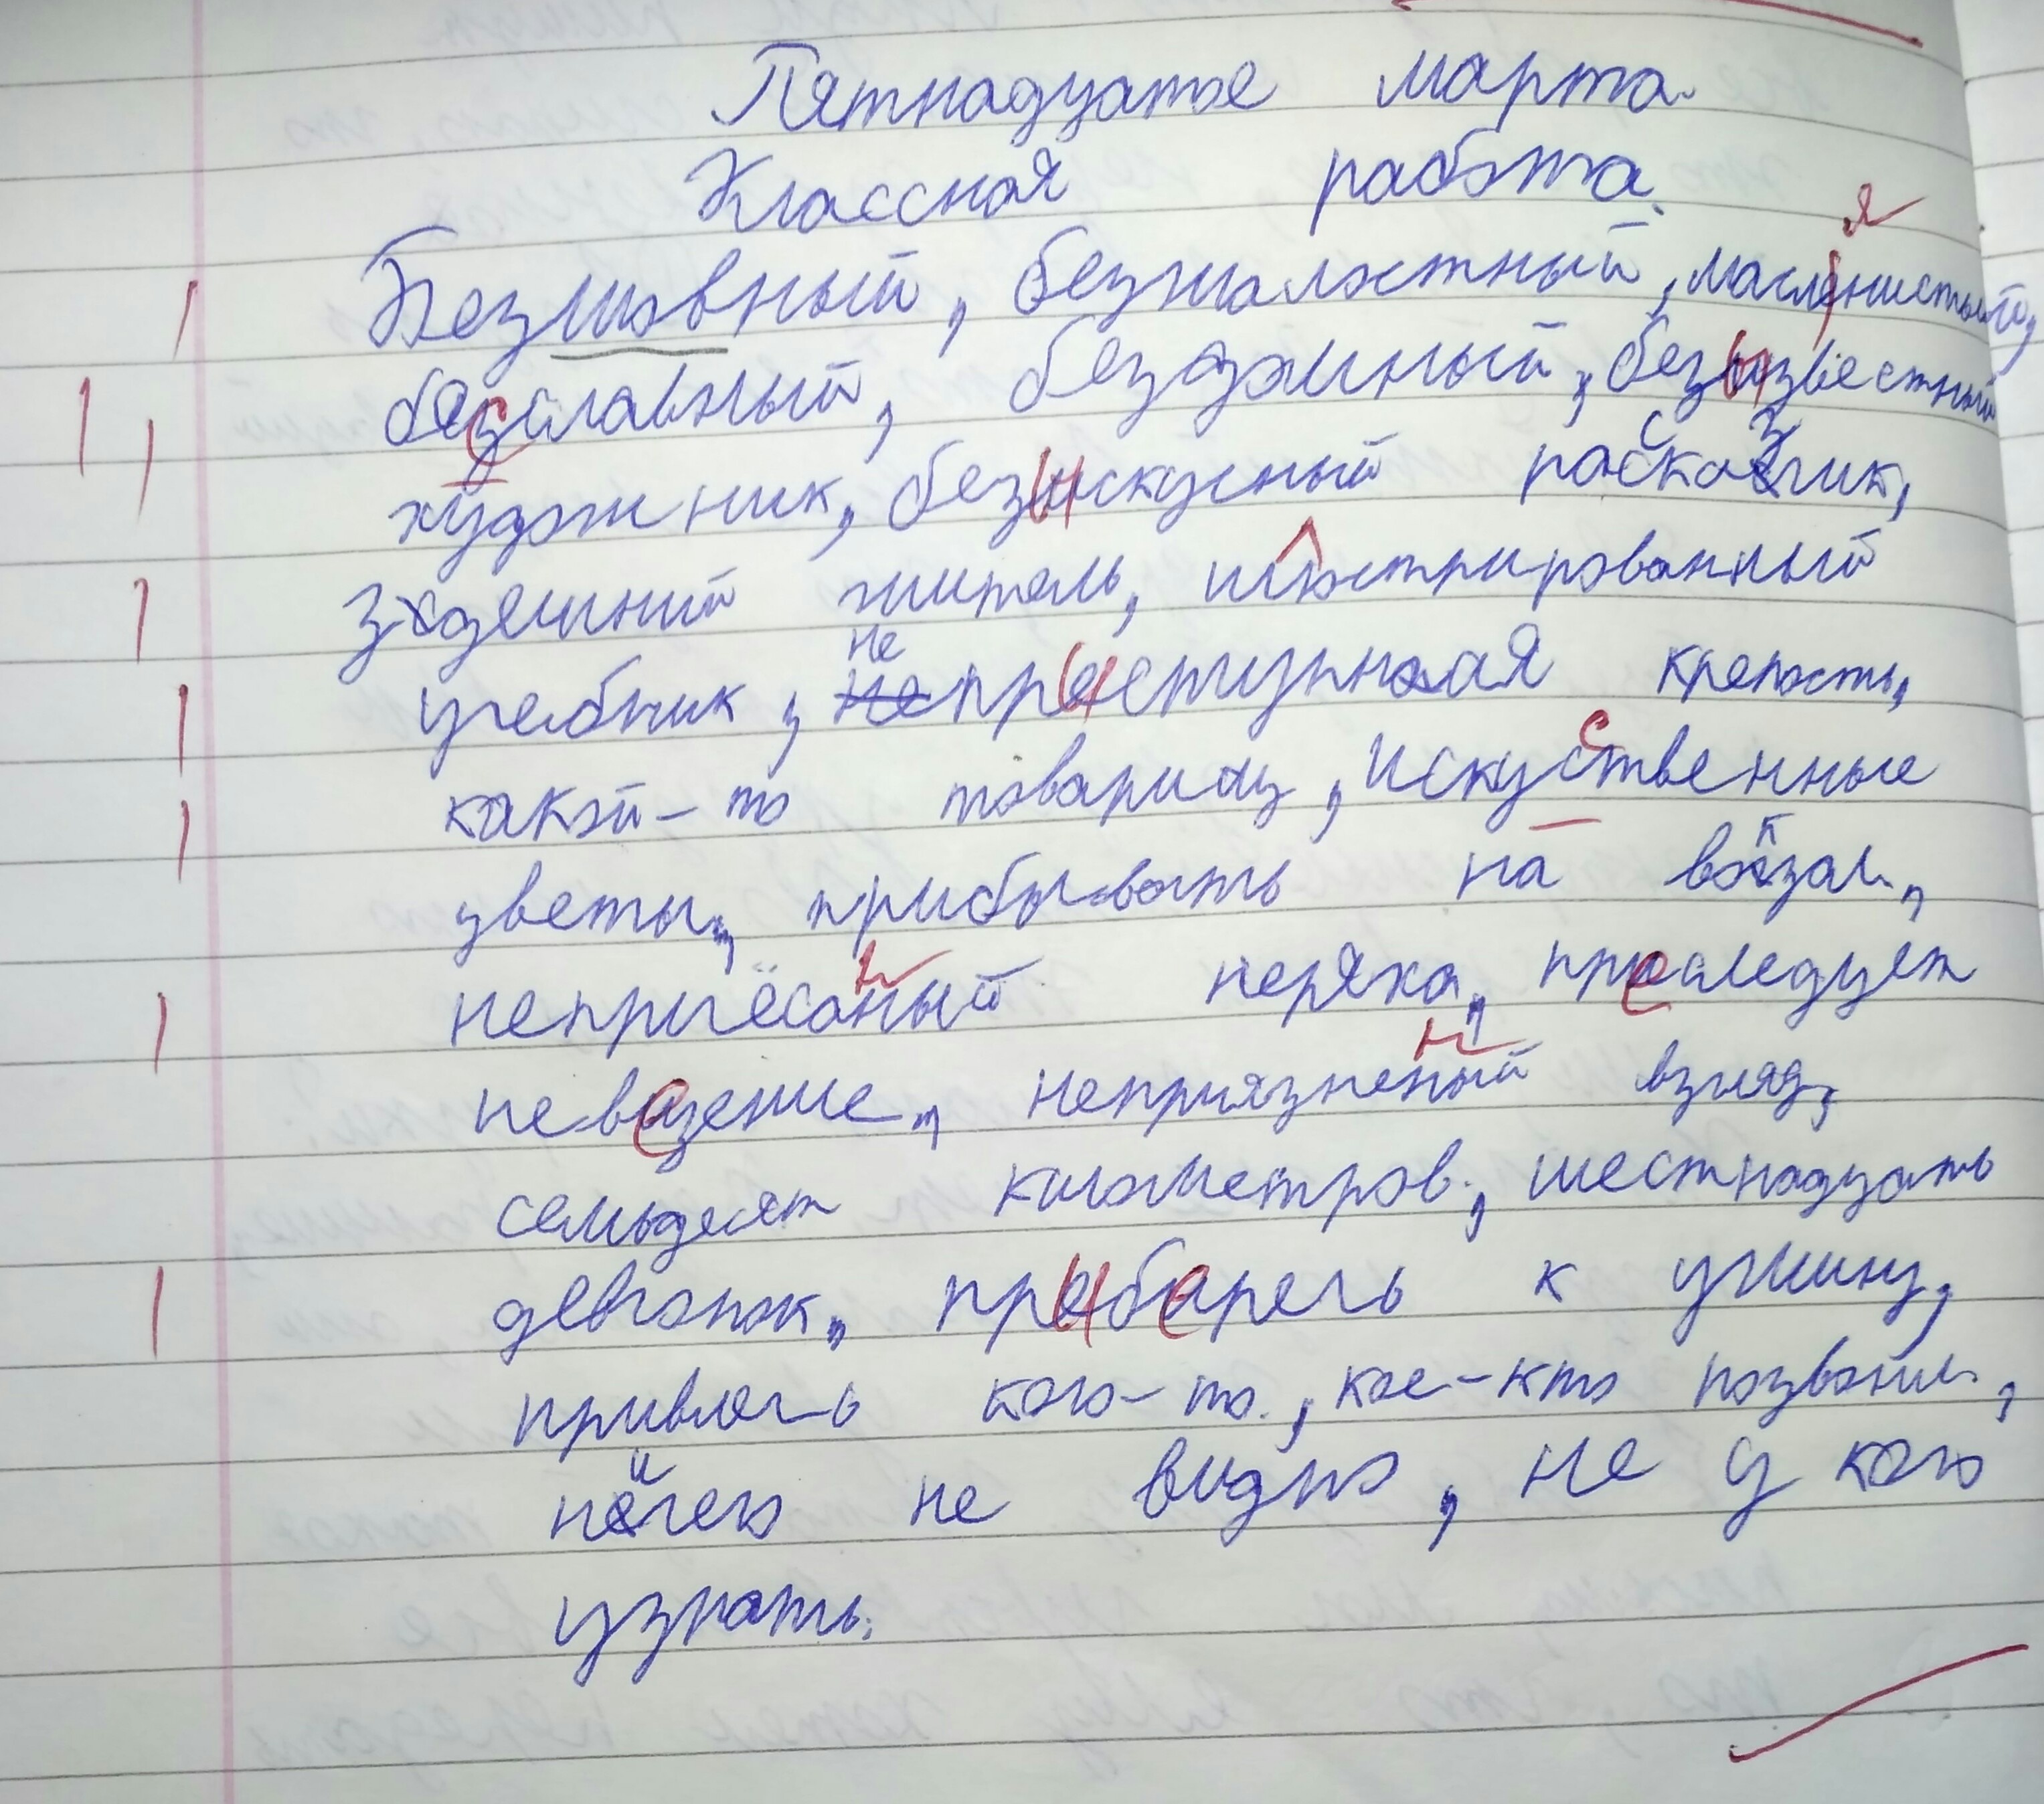 Пятнадцатое марта.
Классная работа.
Безшовный, безжалостный, маслянистый,
бесславный, бездомный, безызвестный
художник, безыскусный рассказчик,
здешний житель, иллюстрированный
учебник, неприступная крепость,
какой-то товарищ, искусственные
цветы, прибывать на вокзал,
непричёсанный неряха, преследует
невезение, неприязненный взгляд,
семьдесят километров, шестнадцать
девчонок, приберечь к ужину,
привлечь кого-то, кое-кто позвонил,
ничего не видно, не у кого
узнать.